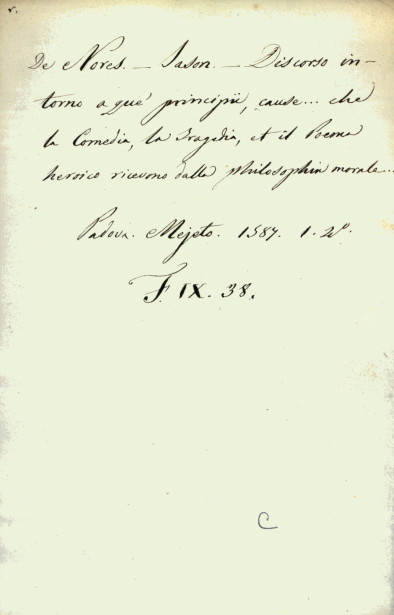 r.
De Nores. — Jason. — Discorso in-
torno a que' principii, cause... che
la Comedia, la Tragedia, et il Poema
heroico ricevono dalla philosophia morale...
Padova. Mejeto. 1587. 1. 4°.
F. IX. 38.
C